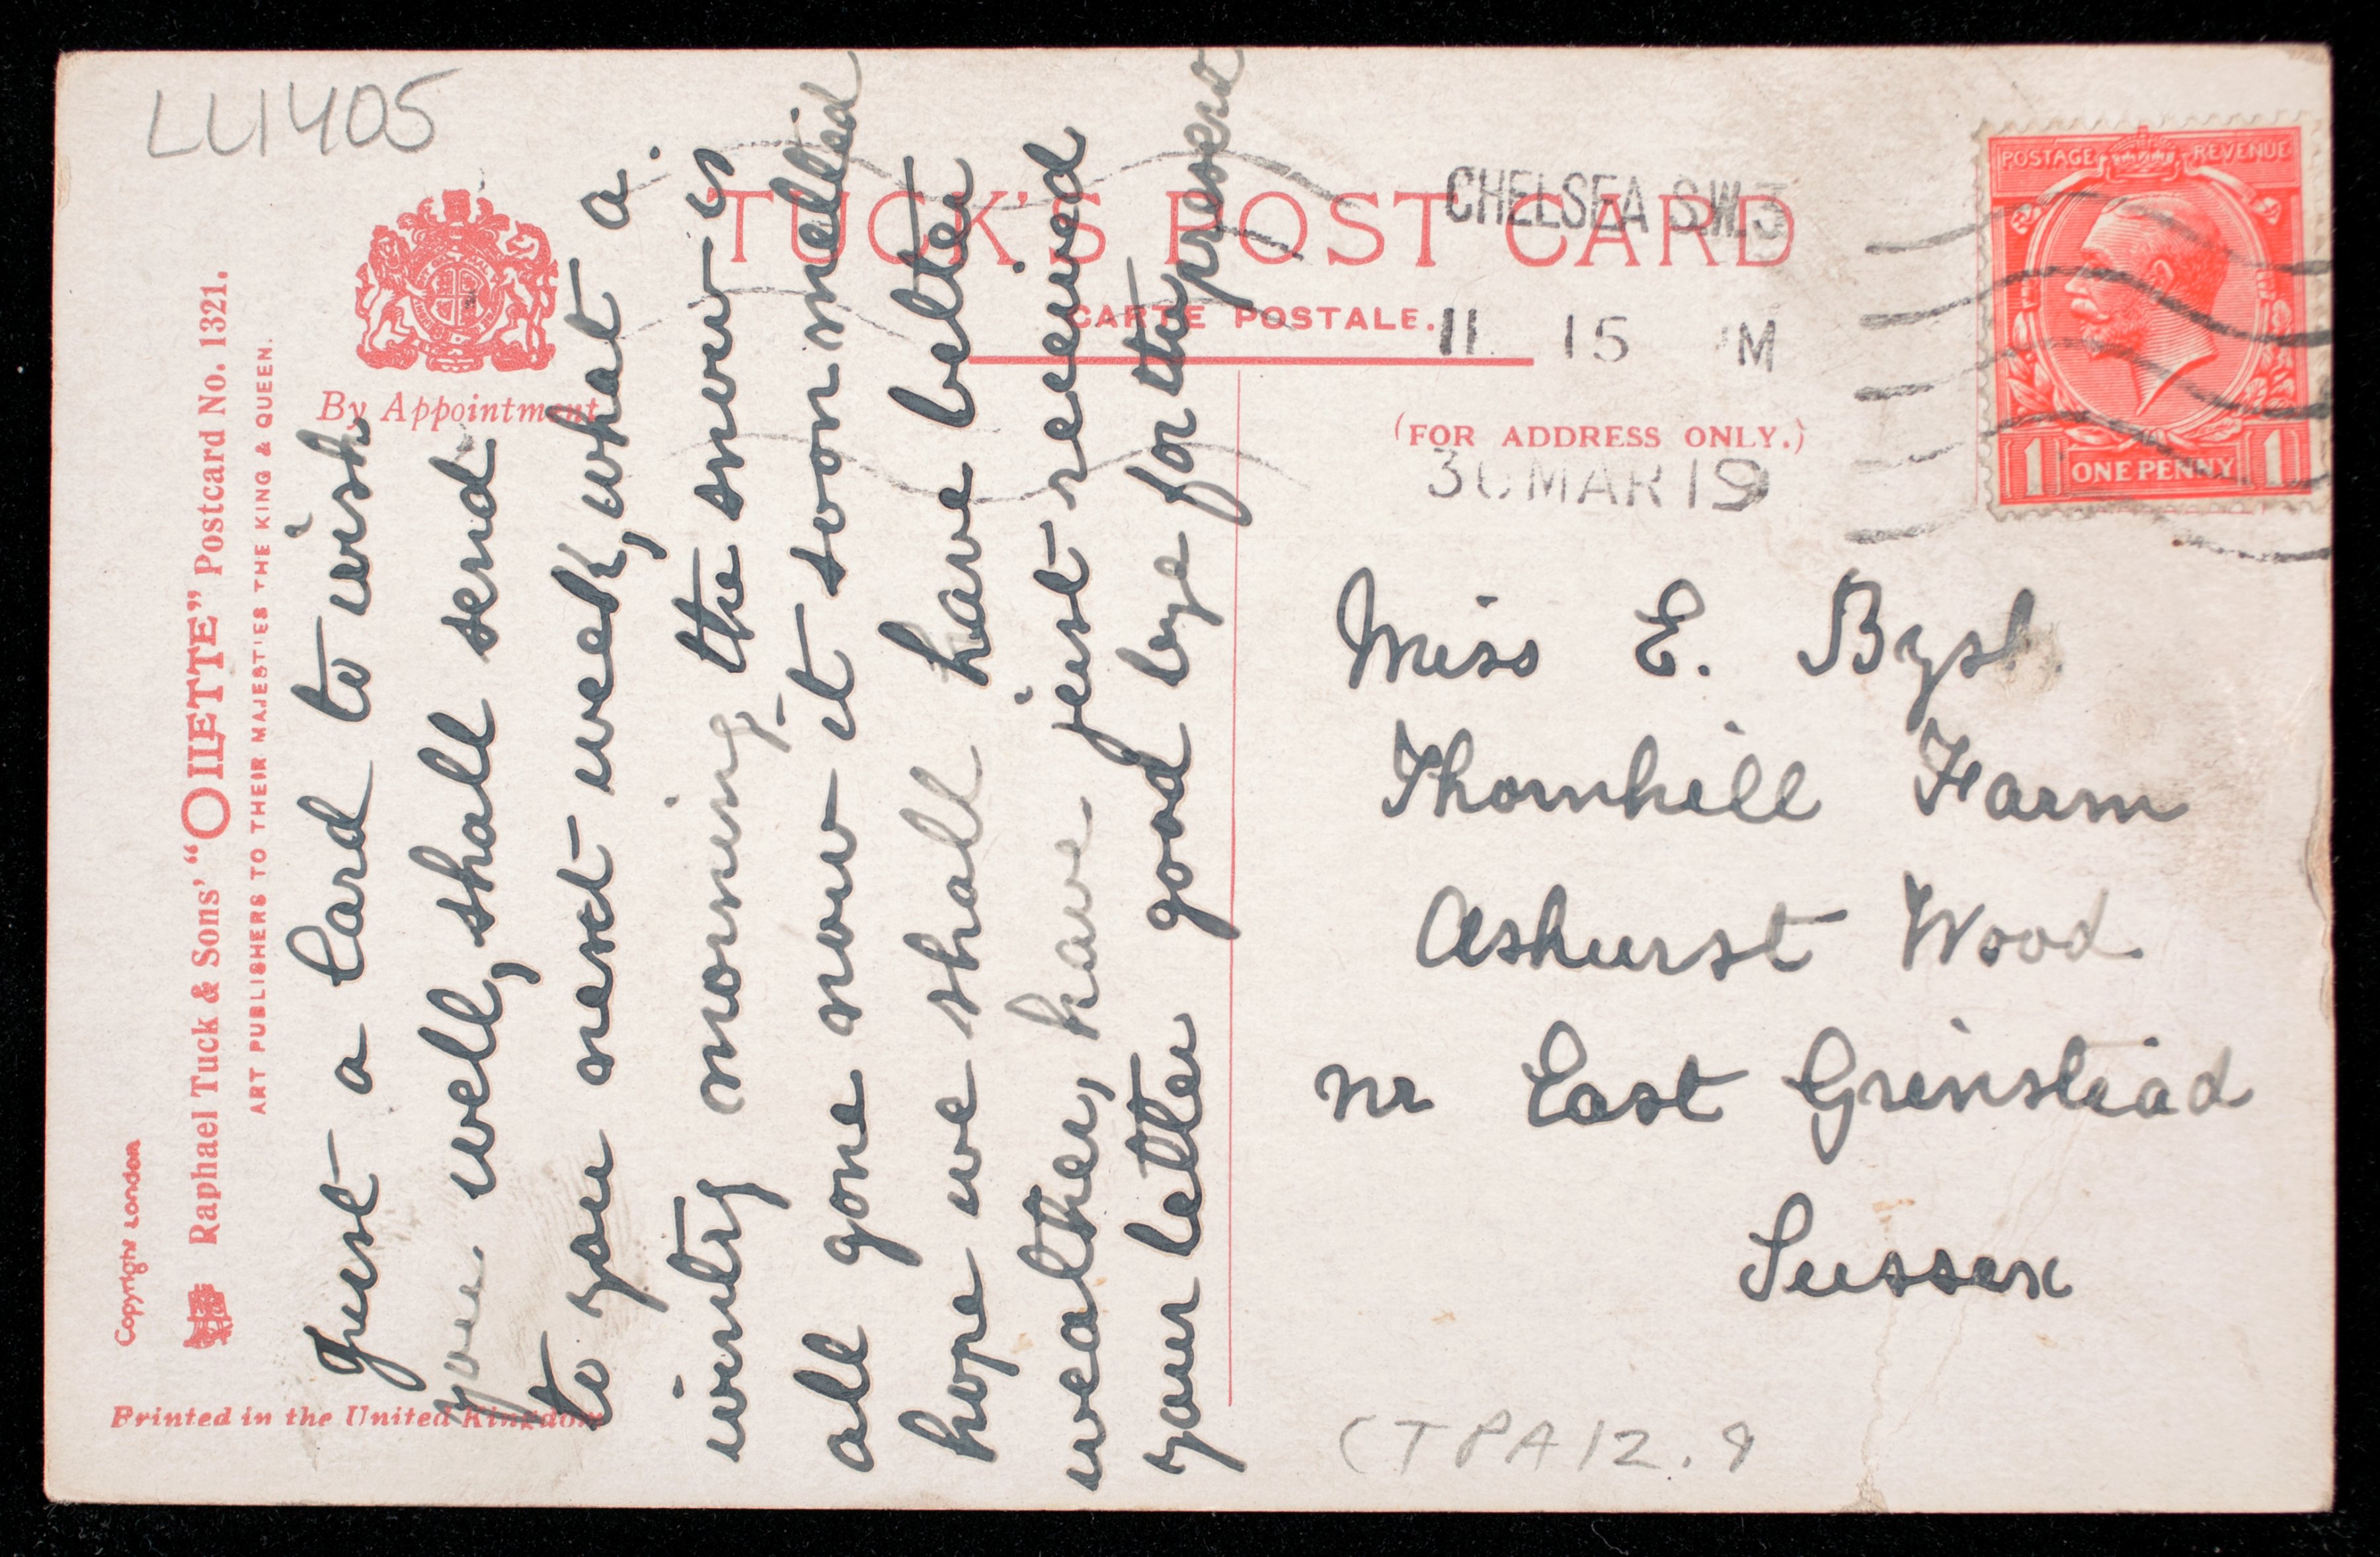 LL1405
Copyright London
Raphael Tuck & Sons' "OILETTE" Postcard No. 1321.
ART PUBLISHERS TO THEIR MAJESTIES THE KING & QUEEN.
By Appointment
Printed in the United Kingdom
TUCK'S POST CARD
CARTE POSTALE.
(FOR ADDRESS ONLY.)
CHELSEA S.W.3
11 15 M
30 MAR 19
POSTAGE REVENUE
1 ONE PENNY 1
Just a Card to wish
you well, shall send
to you next week, what a
wintry morning the snow is
all gone now it soon melted
hope we shall have better
weather, have just received
your letter good bye for the present
Miss E. Bysh.
Thornhill Farm
Ashurst Wood
nr East Grinstead
Sussex
CTPA12.9